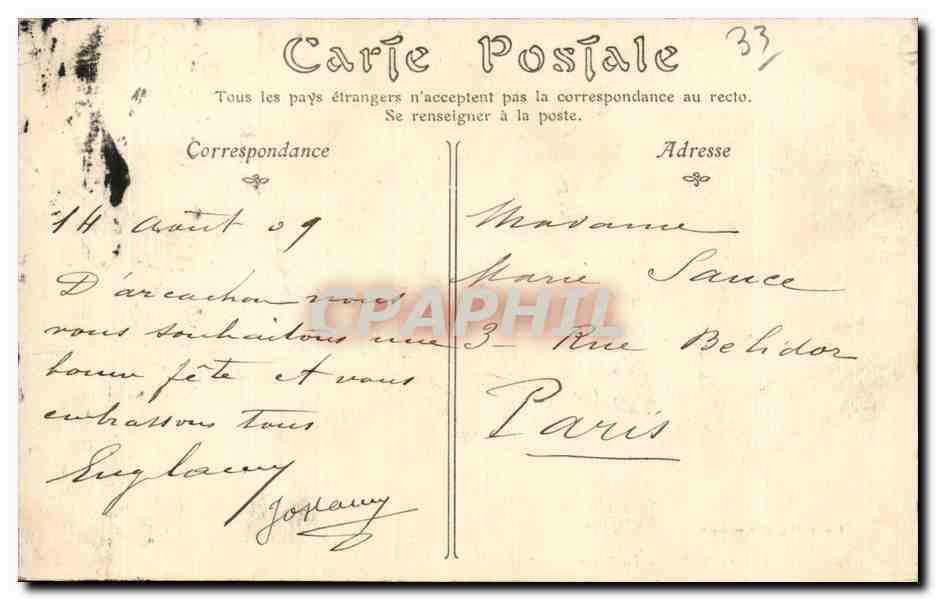 33
Carte Postale
Tous les pays étrangers n'acceptent pas la correspondance au recto.
Se renseigner à la poste.
Correspondance
14 Août 09
D'arcachon nous
vous souhaitons une
bonne fête et vous
embrassons tous
Adresse
Madame
Marie Sauce
3 - Rue Bélidor
Paris
CPAPHIL